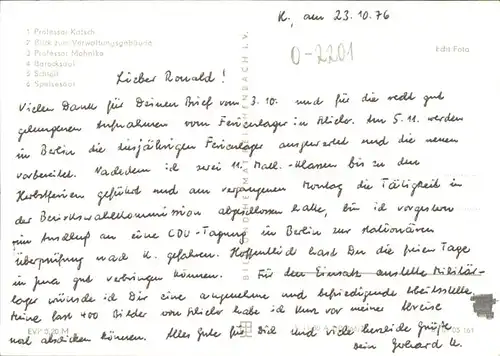 K., am 23.10.76
0-2201
1 Professor Katsch
2 Blick zum Verwaltungsgebäude
3 Professor Mohnike
4 Barocksaal
5 Schloß
6 Speisesaal
Edis Foto
Lieber Ronald!
Vielen Dank für Deinen Brief vom 3.10. und für die recht gut
gelungenen Aufnahmen vom Ferienlager in Am 5.11. werden
in Berlin die diesjährigen Ferienlager ausgewertet und die neuen
vorbereitet. Nachdem ich zwei 11. Math.-Klassen bis zu den
Herbstferien geführt und am vergangenen Montag die Tätigkeit in
der Bezirkswahlkommission abgeschlossen hatte, bin ich vorgestern
im Anschluß an eine CDU-Tagung in Berlin zur stationären
Überprüfung nach K. gefahren. Hoffentlich hast Du die freien Tage
in Jena gut verbringen können. Für den Einsatz anstelle Militär-
lager wünsche ich Dir eine angenehme und befriedigende Arbeitsstelle.
Meine fast 400 Bilder von habe ich kurz vor meiner Abreise
noch abschicken können. Alles Gute für Dich und viele herzliche Grüße
Dein Gerhard K.
EVP 0,20 M